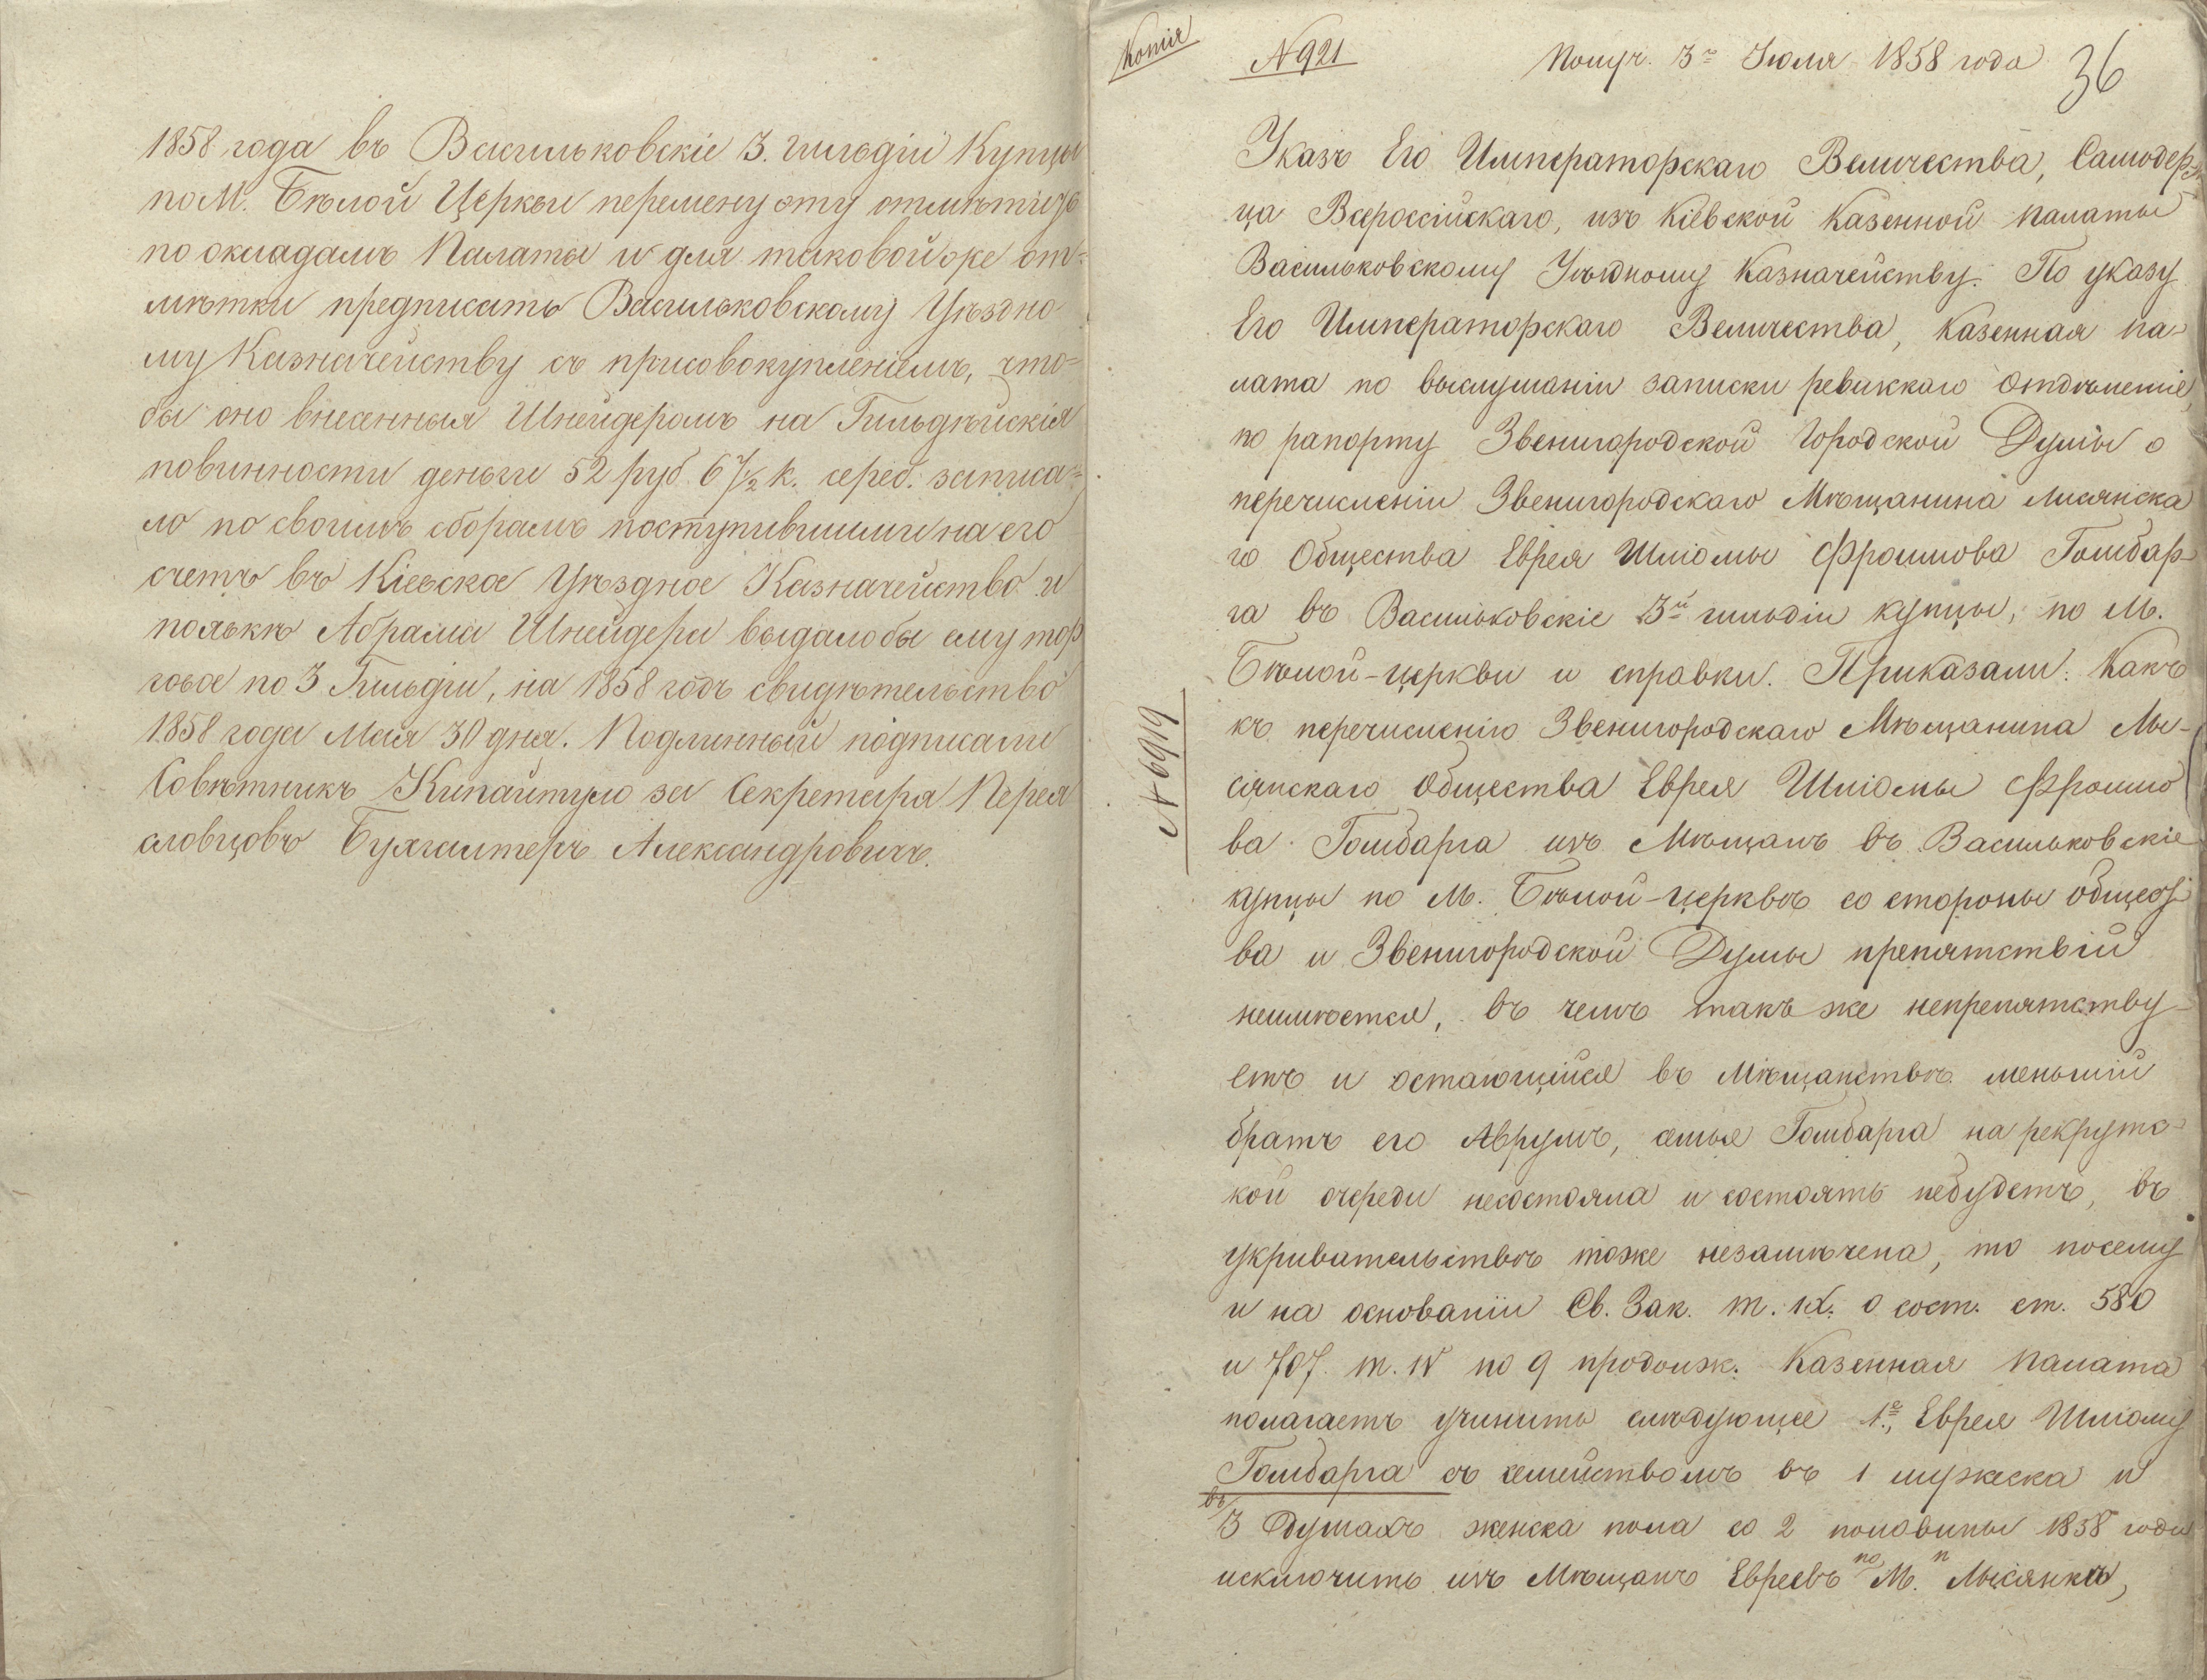 1858 года въ Васильковскіе 3. гильдіи Купцы
по М. Бѣлой Церкви перемену эту отмѣтить
по окладамъ Палаты и для таковой же от-
мѣтки предписать Васильковскому Уѣздно
му Казначейству съ присовокупленіемъ, что=
бы оно внесенныя Шнейдеромъ на Гильдѣйскія
повинности деньги 52 руб. 6 7/2 к. сереб. записа=
ло по своимъ сборамъ поступившими на его
счетъ въ Кіевское Уѣздное Казначейство и
полькѣ Абрама Шнейдера выдало бы ему тор
говое по 3 Гильдіи, на 1858 годъ свидѣтельство
1858 года Мая 30 дня. Подлинный подписали
Совѣтникъ за Секретара Перея
словцовъ Бухгалтеръ Александровичъ.
Копія
№ 921
Получ. 3го Іюля 1858 года
36
Указъ Его Императорскаго Величества, Самодерж
ца Всероссійскаго, изъ Кіевской Казенной палаты
Васильковскому Уѣздному Казначейству. По указу
Его Императорскаго Величества, Казенная па-
лата по выслушаніи записки ревизскаго отдѣленія,
по рапорту Звенигородской Городской Думы о
перечисленіи Звенигородскаго Мѣщанина Лисянска
го Общества Еврея Шліомы Фроимова Голдбар-
га въ Васильковскіе 3й гильдіи купцы, по М.
Бѣлой-церкви и справки. Приказали: Какъ
къ перечисленію Звенигородскаго Мѣщанина Лы-
сянскаго Общества Еврея Шліомы Фроимо
ва Голдбарга изъ Мѣщанъ въ Васильковскіе
купцы по М. Бѣлой-церквѣ со стороны общест
ва и Звенигородской Думы препятствій
неимѣется, въ чемъ такъ же непрепятству-
етъ и остающійся въ Мѣщанствѣ меньшій
братъ его Аврумъ, семья Голдбарга на рекрутс-
кой очереди несостояла и состоять небудетъ, въ
укривательствѣ тоже незамѣчена, то посему
и на основаніи Св. Зак. т. IX. о сост. ст. 580
и 707. т. IV по 9 продолж. Казенная палата
полагаетъ учинить слѣдующее 1е, Еврея Шліому
Голдбарга съ семействомъ въ 1 мужеска и
въ 3 душахъ женска пола со 2 половины 1858 года
исключить изъ Мѣщанъ Евреевъ по М. Лысянкѣ,
№ 6919